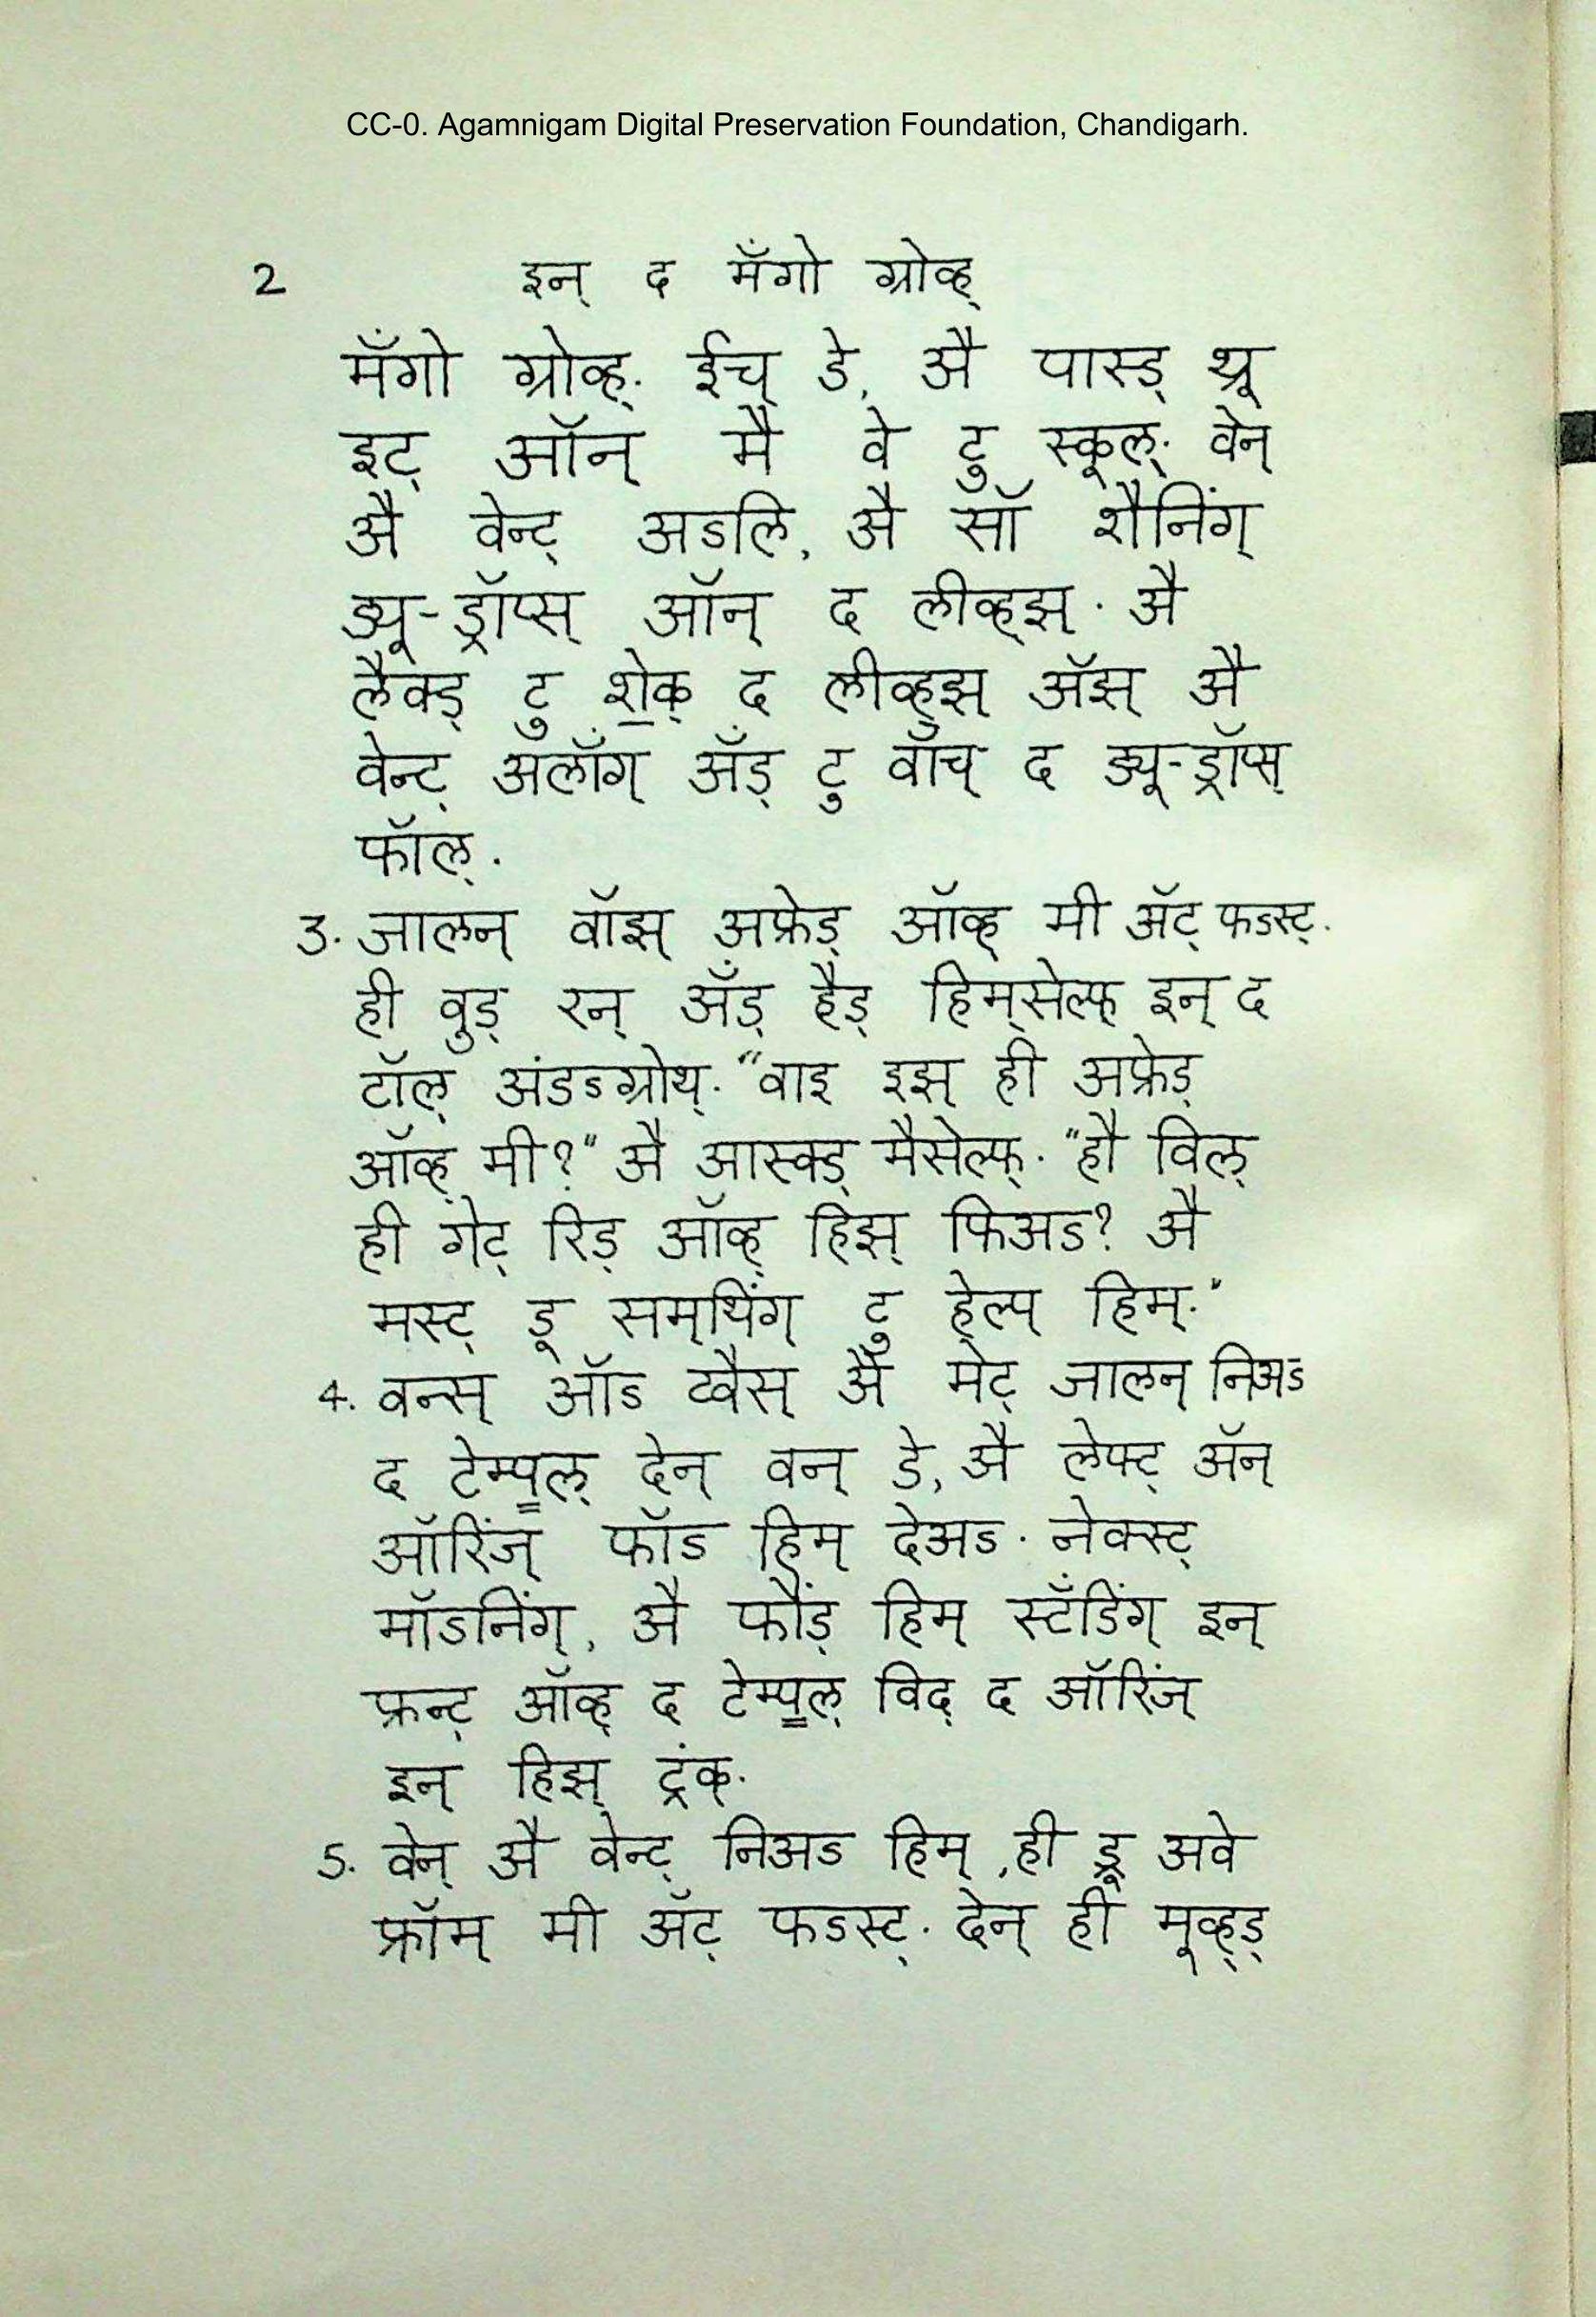 CC-0. Agamnigam Digital Preservation Foundation, Chandigarh.
2 इन् द मॅंगो ग्रोव्ह्
मॅंगो ग्रोव्ह्. ईच् डे, अै पास्ड् थ्रू
इट् ऑन् मै वे टु स्कूल्. वेन्
अै वेन्ट् अडलि, अै सॉ शैनिंग्
ड्यू-ड्रॉप्स् ऑन् द लीव्ह्झ्. अै
लैक्ड् टु शे॒क् द लीव्ह्झ् ॲझ् अै
वेन्ट् अलॉंग् ॲंड् टु वॉच् द ड्यू-ड्रॉप्स्
फॉल्.
3. जालन् वॉझ् अफ्रेड् ऑव्ह् मी ॲट् फडस्ट्.
ही वुड् रन् ॲंड् हैड् हिम्सेल्फ् इन् द
टॉल् अंडडग्रोथ्. “वाइ इझ् ही अफ्रेड्
ऑव्ह् मी?" अै आस्क्ड् मैसेल्फ्. "हौ विल्
ही गेट् रिड् ऑव्ह् हिझ् फिअड? अै
मस्ट् डू सम्थिंग् टु हेल्प् हिम्."
4. वन्स् ऑड ट्वैस् अै मेट् जालन् निअड
द टेम्पल् देन् वन् डे, अै लेफ्ट् ॲन्
ऑरिंज् फॉड हिम् देअड. नेक्स्ट्
मॉडनिंग्, अै फौंड् हिम् स्टॅंडिंग् इन्
फ्रन्ट् ऑव्ह् द टेम्पल् विद् द ऑरिंज्
इन् हिझ् ट्रंक्.
5. वेन् अै वेन्ट् निअड हिम्, ही ड्रू अवे
फ्रॉम् मी ॲट् फडस्ट्. देन् ही मूव्ह्ड्